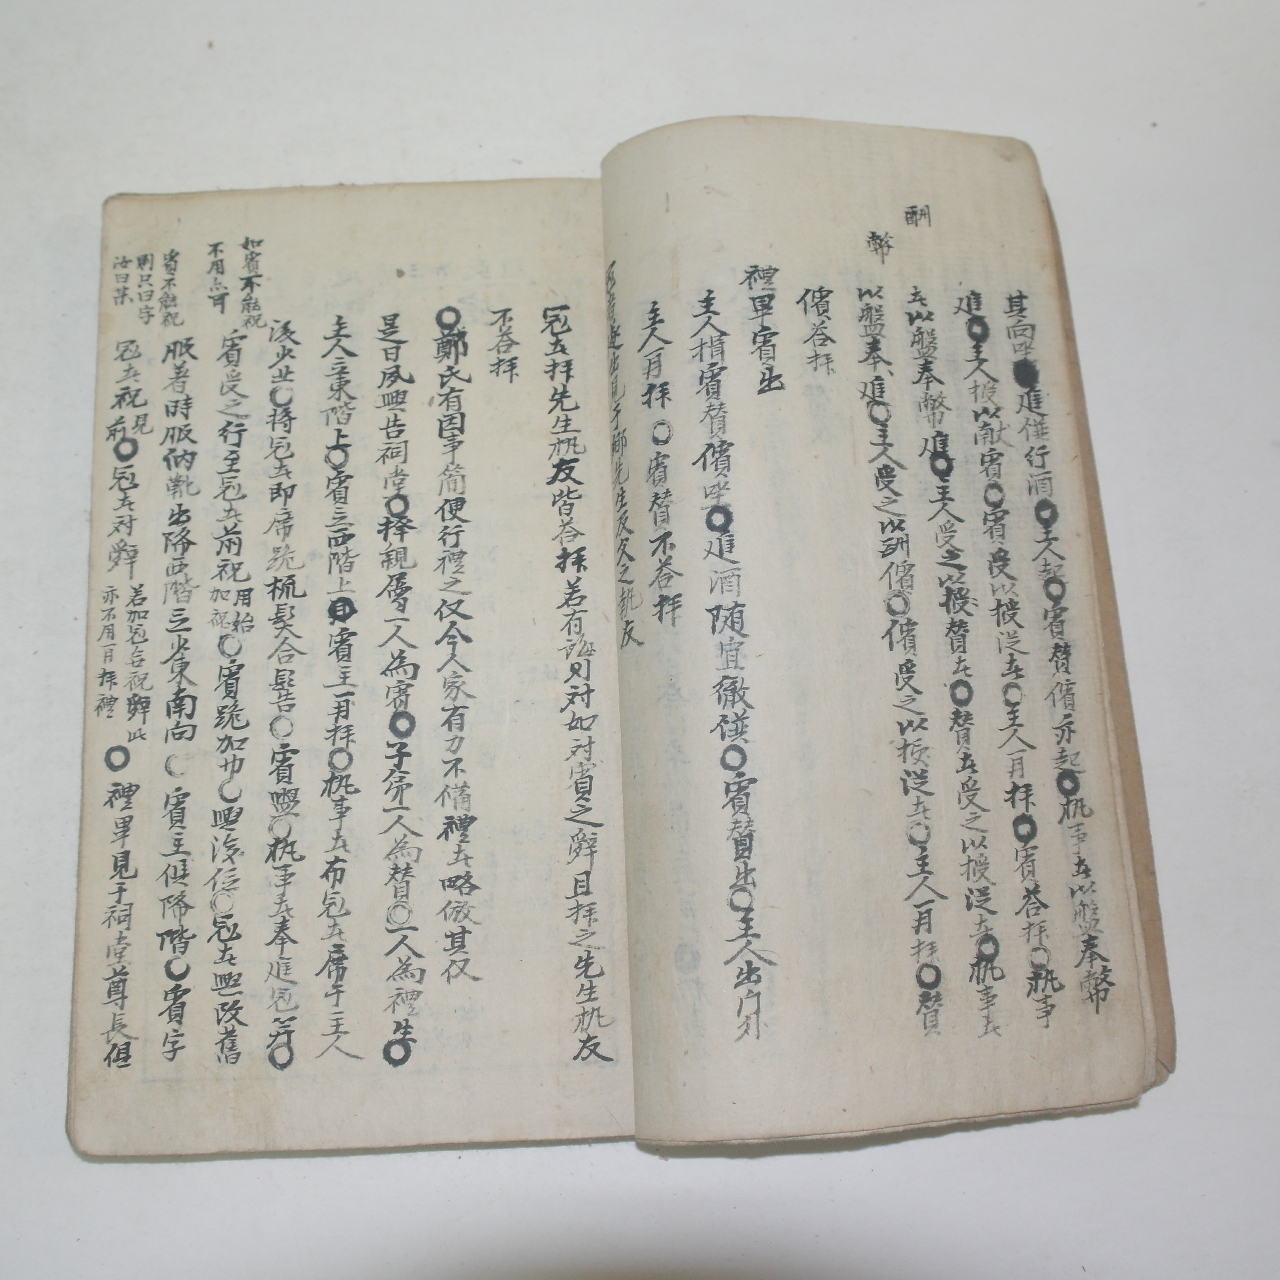 酬幣
其向坐●進饌行酒○主人起○賓贊儐亦起○執事者以盤奉幣
進○主人授以獻賓○賓受以授從者○主人再拜○賓答拜○執事
者以盤奉幣進○主人受之以授贊者○贊者受之以授從者○執事者
以盤奉進○主人受之以酬儐○儐受之以授從者○主人再拜○贊
儐答拜
禮畢賓出
主人揖賓贊儐坐○進酒隨宜徹饌○賓贊出○主人出門外
主人再拜○賓贊不答拜
冠者遂出見于鄉先生及父之執友
冠者拜先生執友皆答拜若有誨則對如對賓之辭且拜之先生執友
不答拜
○鄭氏有因事簡便行禮之仪今人家有力不備禮者略倣其仪
是日夙興告祠堂○擇親屬一人為賓○子弟一人為贊○一人為禮生○
主人立東階上○賓立西階上○賓主再拜○執事者布冠者席于主人
後少北○將冠者即席跪梳髮合髻○賓興○執事者奉進冠笄○
如賓不能祝
不用亦可
賓受之行至冠者前祝用始加祝○賓跪加巾○興復位○冠者興改舊
服著時服納靴出降西階立少東南向○賓主俱降階○賓字
賓不能祝
則只曰字
汝曰某
冠者祝見前○冠者對辭若加冠無祝辭此亦不用再拜禮○禮畢見于祠堂尊長但